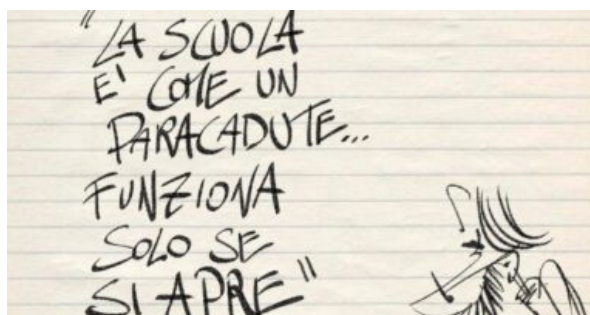 "LA SCUOLA
E' COME UN
PARACADUTE...
FUNZIONA
SOLO SE
SI APRE"